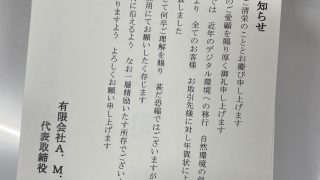 知らせ
ご清栄のこととお慶び申し上げます
のご愛顧を賜り厚く御礼申し上げます
では 近年のデジタル環境への移行 自然環境の保
より 全てのお客様 お取引先様に対し年賀状によ
致しました
して何卒ご理解を賜り 甚だ恐縮ではございますが
無用にてお願いしたく存じます
に沿えるよう なお一層精励いたす所存でござい
りますよう よろしくお願い申し上げます
有限会社A.M.
代表取締役